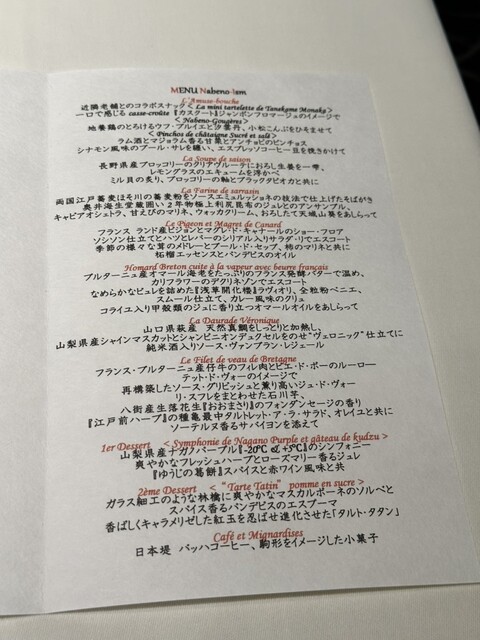 MENU Nabeno-Ism
L'Amuse-bouche
近隣老舗とのコラボスナック < La mini tartelette de Tanekame Monaka >
一口で感じる casse-croûte 『カスクート』ジャンボンフロマージュのイメージで
< Nabeno-Gougères >
地養鶏のとろけるウフ・ブルイエと汐雲丹、小松こんぶをひそませて
< Pinchos de châtaigne Sucré et salé >
ラム酒とマジョラム香る甘栗とアンチョビのピンチョス
シナモン風味のブール・サレを纏い、エスプレッソコーヒー豆を焼きかけて
La Soupe de saison
長野県産ブロッコリーのクリアヴルーテにおろし生姜を一雫、
レモングラスのエキュームを浮かべ
ミル貝の炙り、ブロッコリーの軸とブラックタピオカと共に
La Farine de sarrasin
両国江戸蕎麦ほそ川の蕎麦粉をソースエミュルッショネの技法で仕上げたそばがき
奥井海生堂蔵囲い2年物極上利尻昆布のジュレとのアンサンブル、
キャビアオシェトラ、甘えびのマリネ、ウォッカクリーム、おろしたて天城山葵をあしらって
Le Pigeon et Magret de Canard
フランス ランド産ピジョンとマグレ・ド・キャナールのショー・フロア
ソシソン仕立てとハツとレバーのシリアル入りサラダ・リでエスコート
季節の様々な茸のメドレーとプール・ド・セップ、柿のマリネと共に
柘榴エッセンスとパンデピスのオイル
Homard Breton cuite à la vapeur avec beurre français
ブルターニュ産オマール海老をたっぷりのフランス発酵バターで温め、
カリフラワーのデグリネゾンでエスコート
なめらかなピュレを詰めた『浅草開化楼』ラヴィオリ、全粒粉ベニエ、
スムール仕立て、カレー風味のクリュ
コライユ入り甲殻類のジュに香り立つオマールオイルをあしらって
La Daurade Véronique
山口県萩産 天然真鯛をしっとりと加熱し、
山梨県産シャインマスカットとシャンピニオンデュクセルをのせ“ヴェロニック”仕立てに
純米酒入りソース・ヴァンブラン・レジェール
Le Filet de veau de Bretagne
フランス・ブルターニュ産仔牛のフィレ肉とピエ・ド・ポーのルーロー
テット・ド・ヴォーのイメージで
再構築したソース・グリビッシュと薫り高いジュ・ド・ヴォー
リ・スフレをまとわせた石川芋、
八街産生落花生『おおまさり』のフォンダンセージの香り
『江戸前ハーブ』の種亀最中タルトレット・ア・ラ・サラド、オレイユと共に
ソーテルヌ香るサバイヨンを添えて
1er Dessert < Symphonie de Nagano Purple et gâteau de kudzu >
山梨県産ナガノパープル『-20℃ & +5℃』のシンフォニー
爽やかなフレッシュハーブとローズマリー香るジュレ
『ゆうじの葛餅』スパイスと赤ワイン風味と共
2ème Dessert < “Tarte Tatin” pomme en sucre >
ガラス細工のような林檎に爽やかなマスカルポーネのソルベと
スパイス香るパンデピスのエスプーマ
香ばしくキャラメリゼした紅玉を忍ばせ進化させた「タルト・タタン」
Café et Mignardises
日本堤 バッハコーヒー、駒形をイメージした小菓子